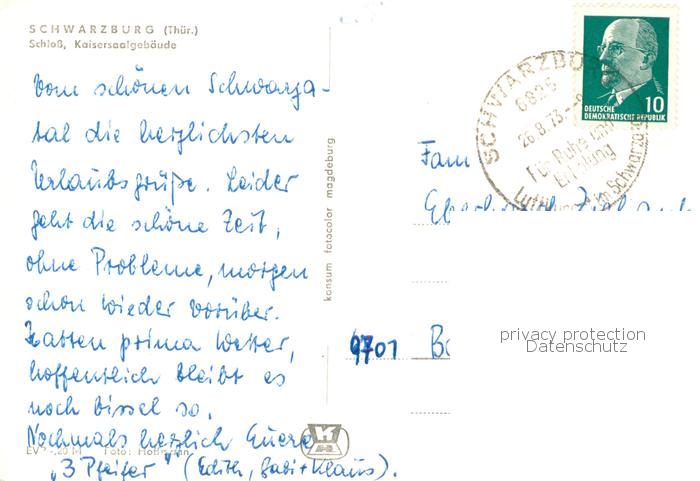 SCHWARZBURG (Thür.)
Schloß, Kaisersaalgebäude
Vom schönen Schwarza-
tal die herzlichsten
Urlaubsgrüße. Leider
geht die schöne Zeit,
ohne Probleme, morgen
schon wieder vorüber.
Hatten prima Wetter,
hoffentlich bleibt es
noch bissel so.
Nochmals herzlich Euere
„3 Pfeifer" (Edith, Gabi + Klaus).
EVP -,20 M Foto: Hoffmann
konsum fotocolor magdeburg
SCHWARZBURG
6825
26.8.73.-8
Für Ruhe und
Erholung
im Schwarzatal
DEUTSCHE
DEMOKRATISCHE REPUBLIK
10
Fam
Eberhardt
9701
privacy protection
Datenschutz